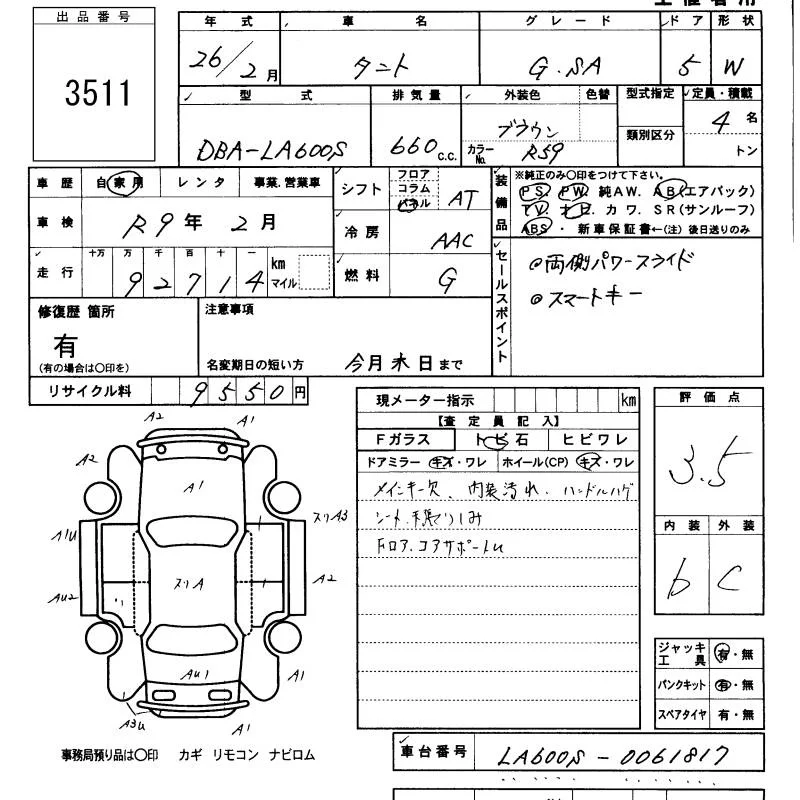 出品番号
3511
年式 車名 グレード ドア 形状
26/2月 タント G.SA 5 W
型式 排気量 外装色 色替 型式指定 定員・積載
DBA-LA600S 660c.c. ブラウン カラーNo. R59 類別区分 4名 トン
車歴 自家用 レンタ 事業.営業車
車検 R9年2月
走行 十万 万 千 百 十 一
92714 km マイル
シフト フロア コラム パネル AT
冷房 AAC
燃料 G
装備品
※純正のみ〇印をつけて下さい。
PS. PW 純AW. AB(エアバック)
TV. ナビ. カワ. SR(サンルーフ)
ABS・新車保証書←(注)後日送りのみ
セールスポイント
◎両側パワースライド
◎スマートキー
修復歴 箇所
有
(有の場合は〇印を)
注意事項
名変期日の短い方 今月末日まで
リサイクル料 9550円
現メーター指示 km
【査定員記入】
Fガラス トビ石 ヒビワレ
ドアミラー キズ・ワレ ホイール(CP) キズ・ワレ
メインキー欠. 内装汚れ. ハンドルハゲ
フロア.コアサポートU
評価点
3.5
内装 外装
b C
ジャッキ工具 有・無
パンクキット 有・無
スペアタイヤ 有・無
A2 A1
A2 A1
A1U スリA3
スリA A2
AU2
AU1 A1
A3U A1
事務局預り品は〇印 カギ リモコン ナビロム
車台番号 LA600S-0061817